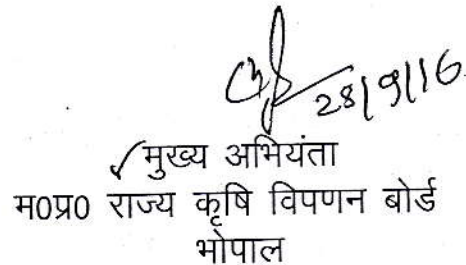 28/9/16
मुख्य अभियंता
म0प्र0 राज्य कृषि विपणन बोर्ड
भोपाल